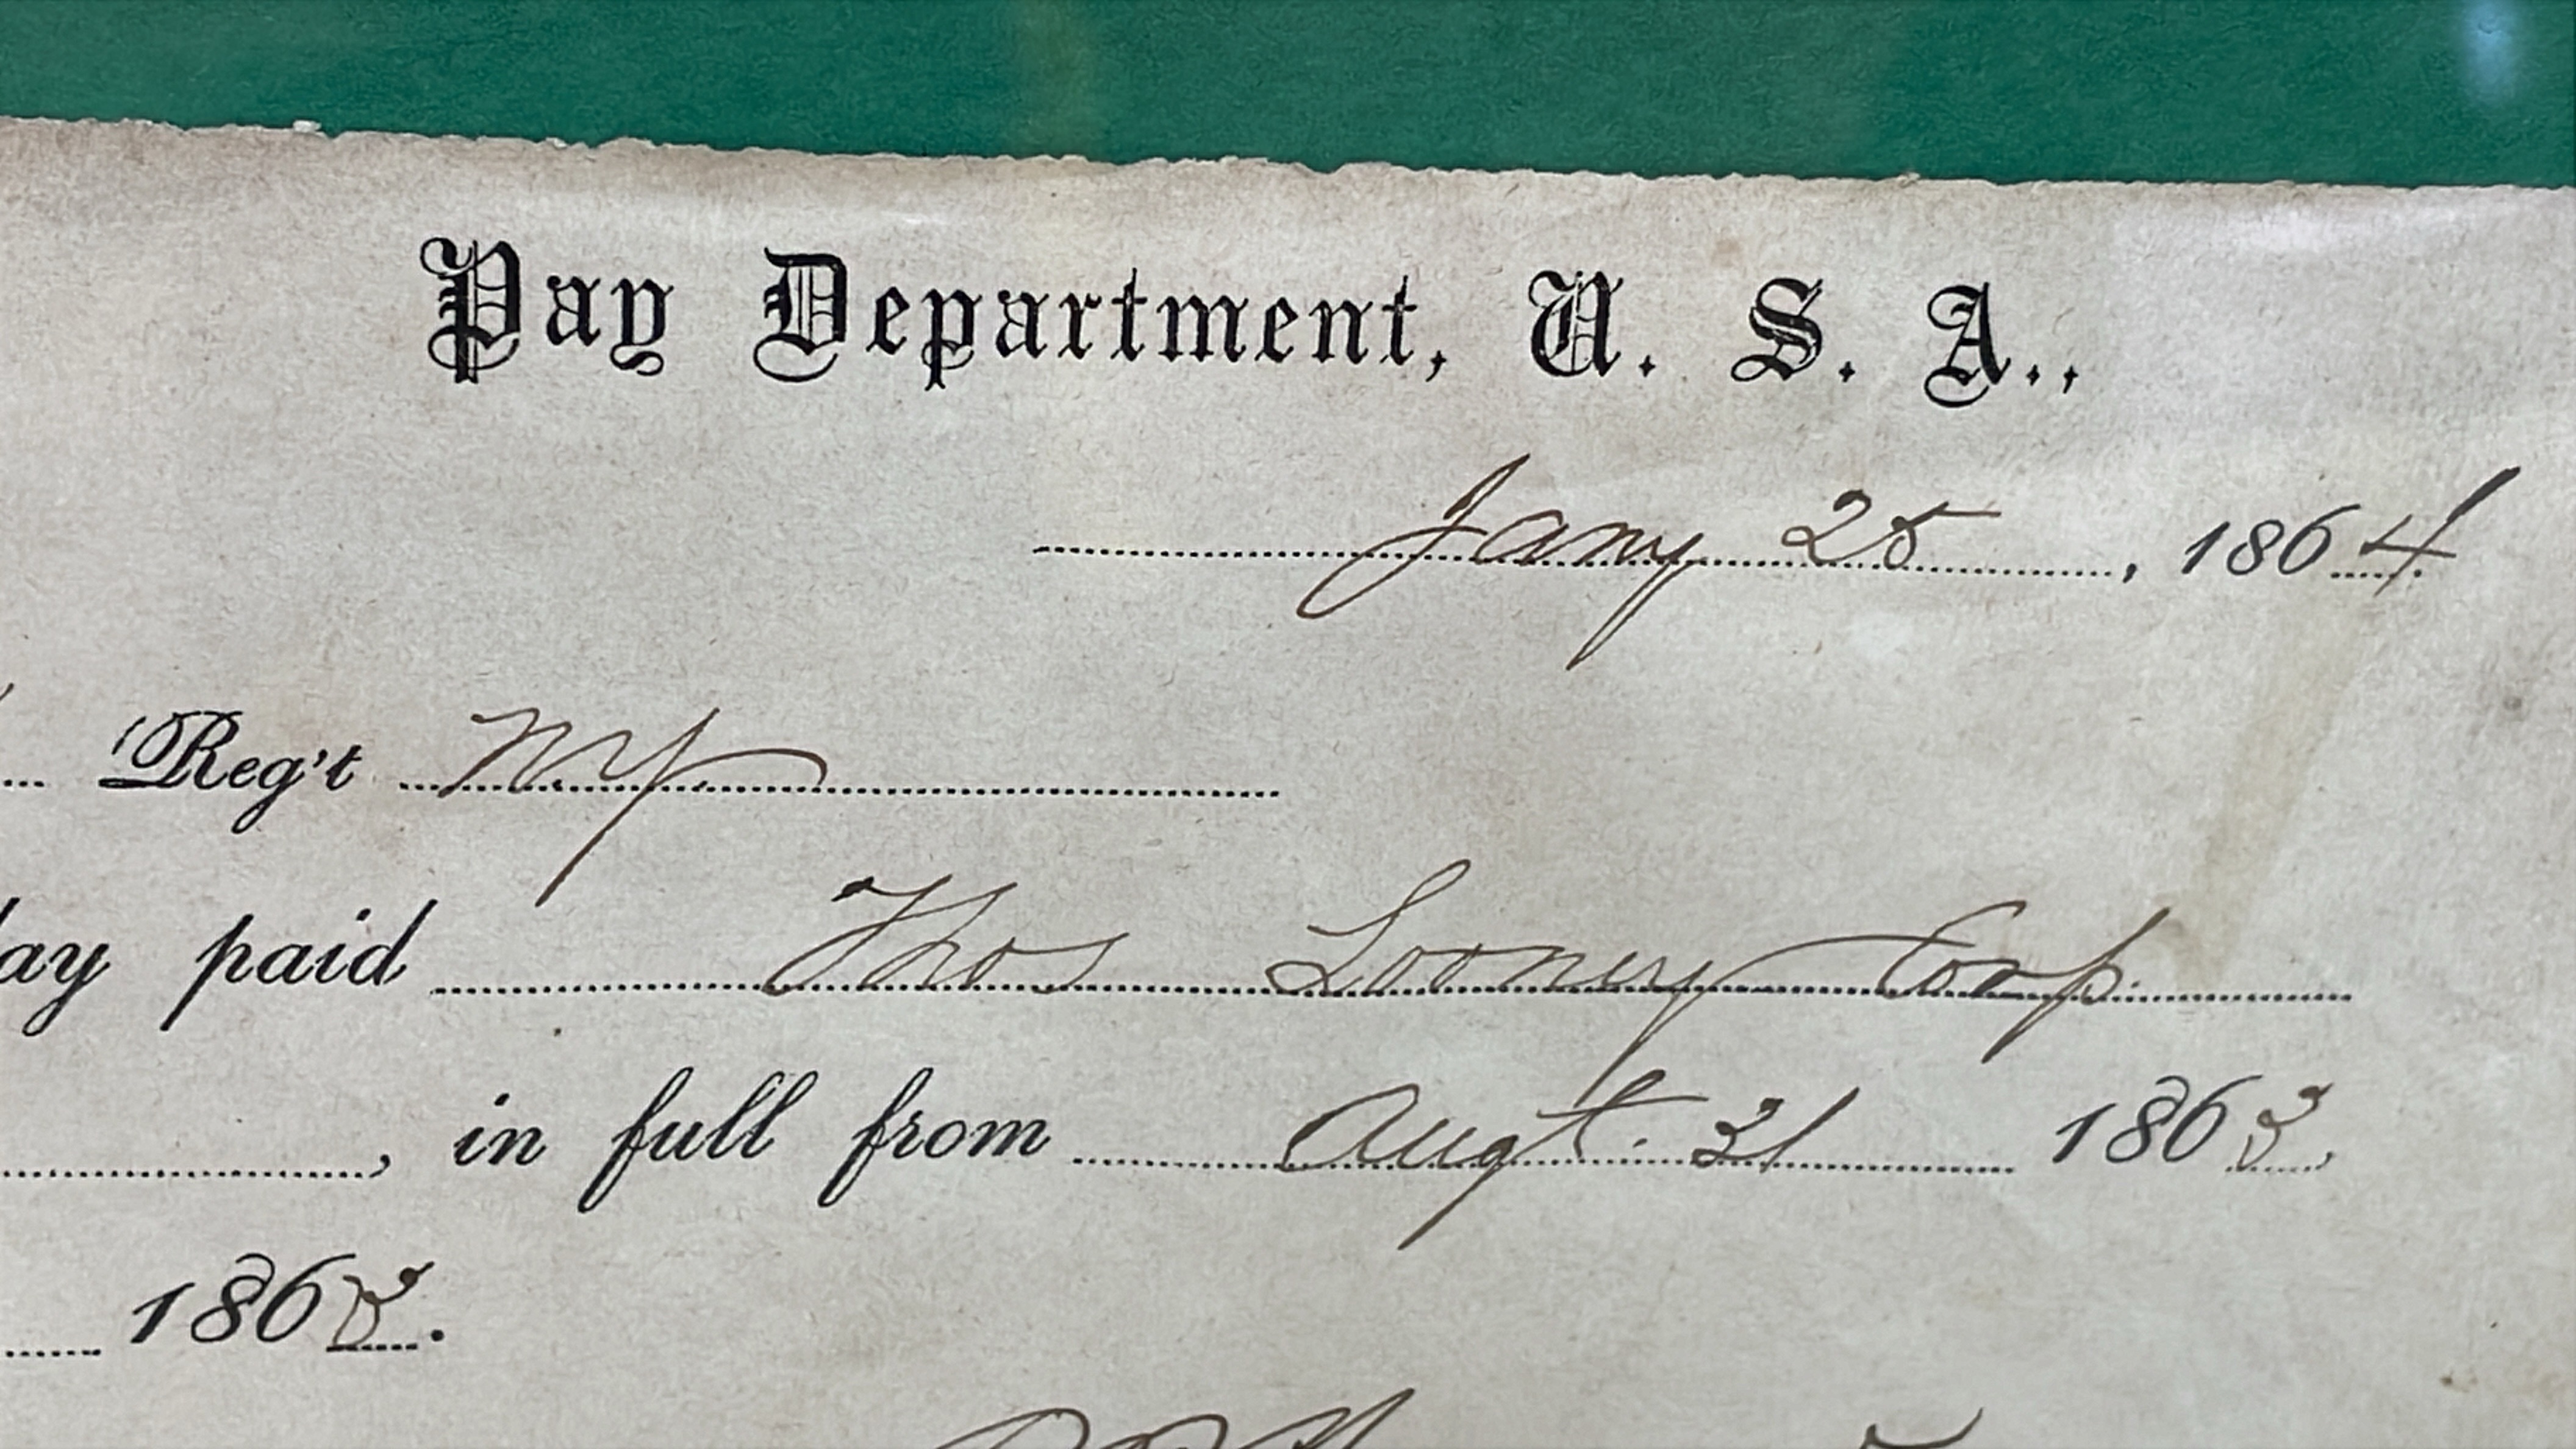 Pay Department, U. S. A.,
Jany 25, 1864
Reg't NY
ay paid Thos Looney Corp.
, in full from Augt. 31 1863.
1863.